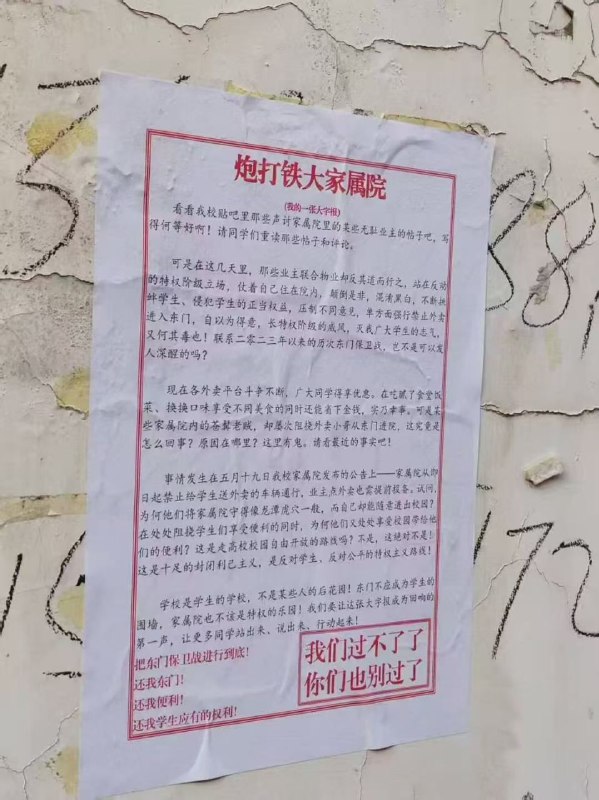 炮打铁大家属院
(我的一张大字报)
看看我校贴吧里那些声讨家属院里的某些无耻业主的帖子吧，写
得何等好啊！请同学们重读那些帖子和评论。
可是在这几天里，那些业主联合物业却反其道而行之，站在反动
的特权阶级立场，仗着自己住在院内，颠倒是非，混淆黑白，不断挑
衅学生、侵犯学生的正当权益，压制不同意见，单方面强行禁止外卖
进入东门，自以为得意，长特权阶级的威风，灭我广大学生的志气，
又何其毒也！联系二零二三年以来的历次东门保卫战，岂不是可以发
人深醒的吗？
现在各外卖平台斗争不断，广大同学得享优惠。在吃腻了食堂饭
菜、换换口味享受不同美食的同时还能省下金钱，实乃幸事。可是某
些家属院内的苍髯老贼，却屡次阻挠外卖小哥从东门进院，这究竟是
怎么回事？原因在哪里？这里有鬼。请看最近的事实吧！
事情发生在五月十九日我校家属院发布的公告上——家属院从即
日起禁止给学生送外卖的车辆通行，业主点外卖也需提前报备。试问，
为何他们将家属院守得像龙潭虎穴一般，而自己却能随意进出校园？
在处处阻挠学生们享受便利的同时，为何他们又处处享受校园带给他
们的便利？这是走高校校园自由开放的路线吗？不是，这绝对不是！
这是十足的封闭利己主义，是反对学生、反对公平的特权主义路线！
学校是学生的学校，不是某些人的后花园！东门不应成为学生的
围墙，家属院也不该是特权的乐园！我们要让这张大字报成为回响的
第一声，让更多同学站出来、说出来、行动起来！
把东门保卫战进行到底！
还我东门！
还我便利！
还我学生应有的权利！
我们过不了了
你们也别过了